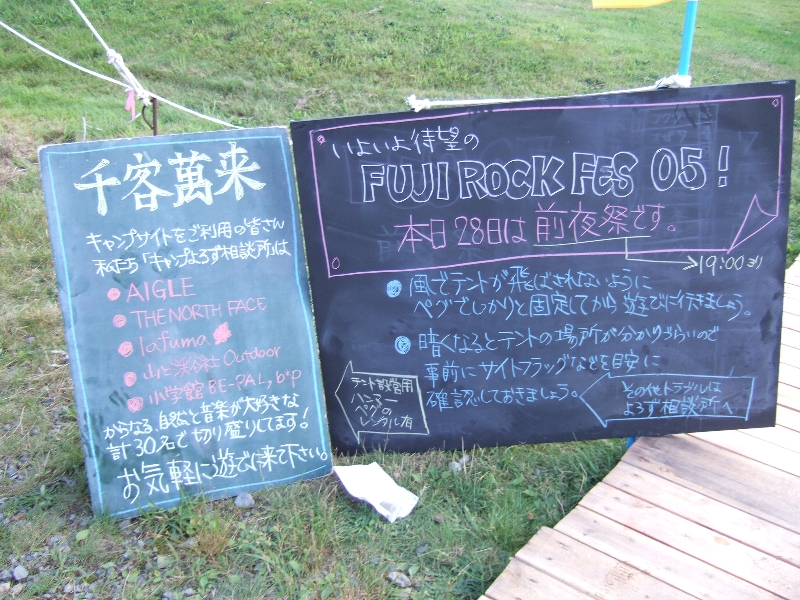 千客萬来
キャンプサイトをご利用の皆さん
私たち「キャンプよろず相談所」は
AIGLE
THE NORTH FACE
lafuma
山と渓谷社 Outdoor
小学館 BE-PAL, b*p
からなる、自然と音楽が大好きな
計30名で切り盛りしてます!
お気軽に遊びに来て下さい。
いよいよ待望の
FUJI ROCK FES 05!
本日28日は前夜祭です。
19:00より
風でテントが飛ばされないように
ペグでしっかりと固定してから遊びに行きましょう。
暗くなるとテントの場所が分かりづらいので
事前にサイトフラッグなどを目安に
確認しておきましょう。
テント設営用
ハンマー
ペグの
レンタル有
その他トラブルは
よろず相談所へ